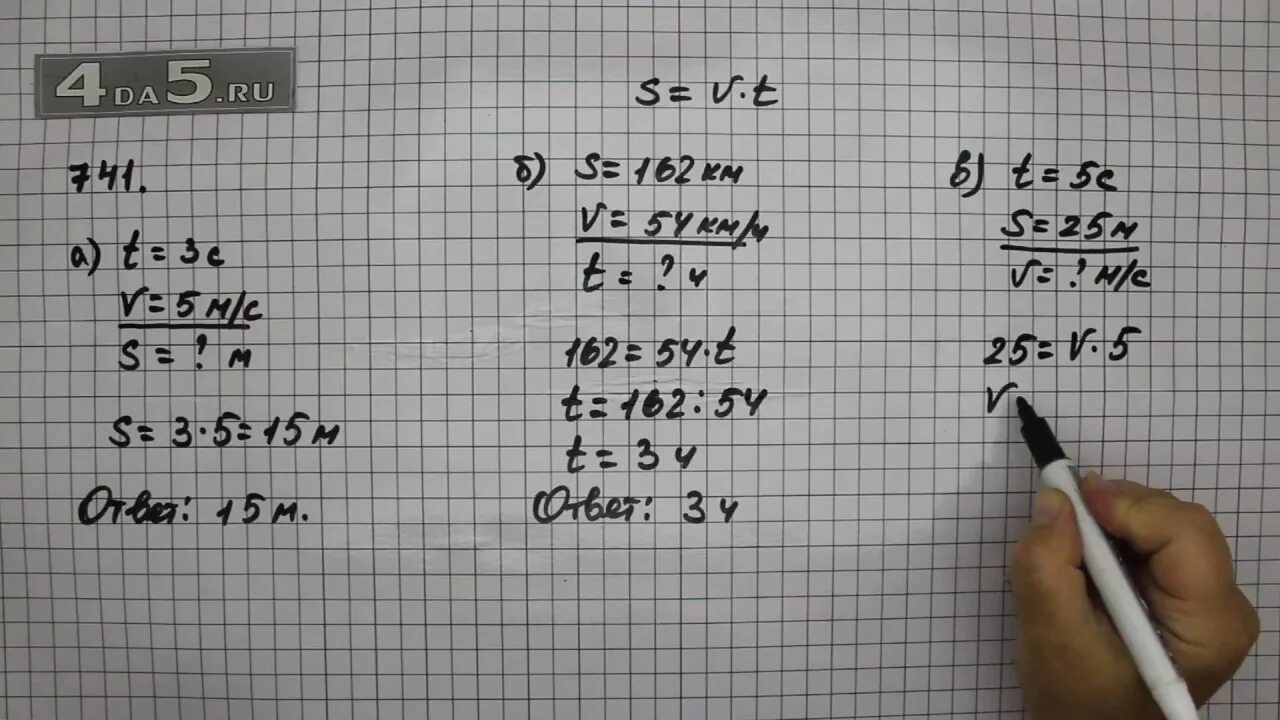 4DA5.RU
S = V · t
741.
а) t = 3с
V = 5 м/с
S = ? м
S = 3 · 5 = 15 м
Ответ: 15 м.
б) S = 162 км
V = 54 км/ч
t = ? ч
162 = 54 · t
t = 162 : 54
t = 3 ч
Ответ: 3 ч
в) t = 5с
S = 25 м
V = ? м/с
25 = V · 5
V